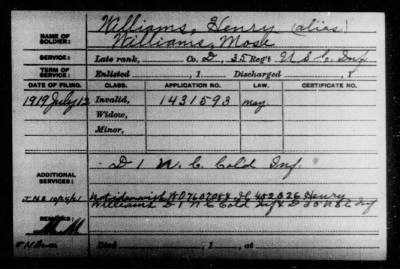 Williams, Henry (alias)
NAME OF SOLDIER: Williams, Mose
SERVICE: Late rank, Co. D, 35 Reg't U.S.C. Inf.
TERM OF SERVICE: Enlisted , 1 Discharged , 1
DATE OF FILING. CLASS. APPLICATION NO. LAW. CERTIFICATE NO.
1919 July 12 Invalid, 1431593 May
Widow,
Minor,
D 1 N.C. Cold Inf.
ADDITIONAL SERVICES:
Henry
Williams D 1 N C Cold Inf & D 35 U S C Inf
REMARKS:
Died , 1 , at